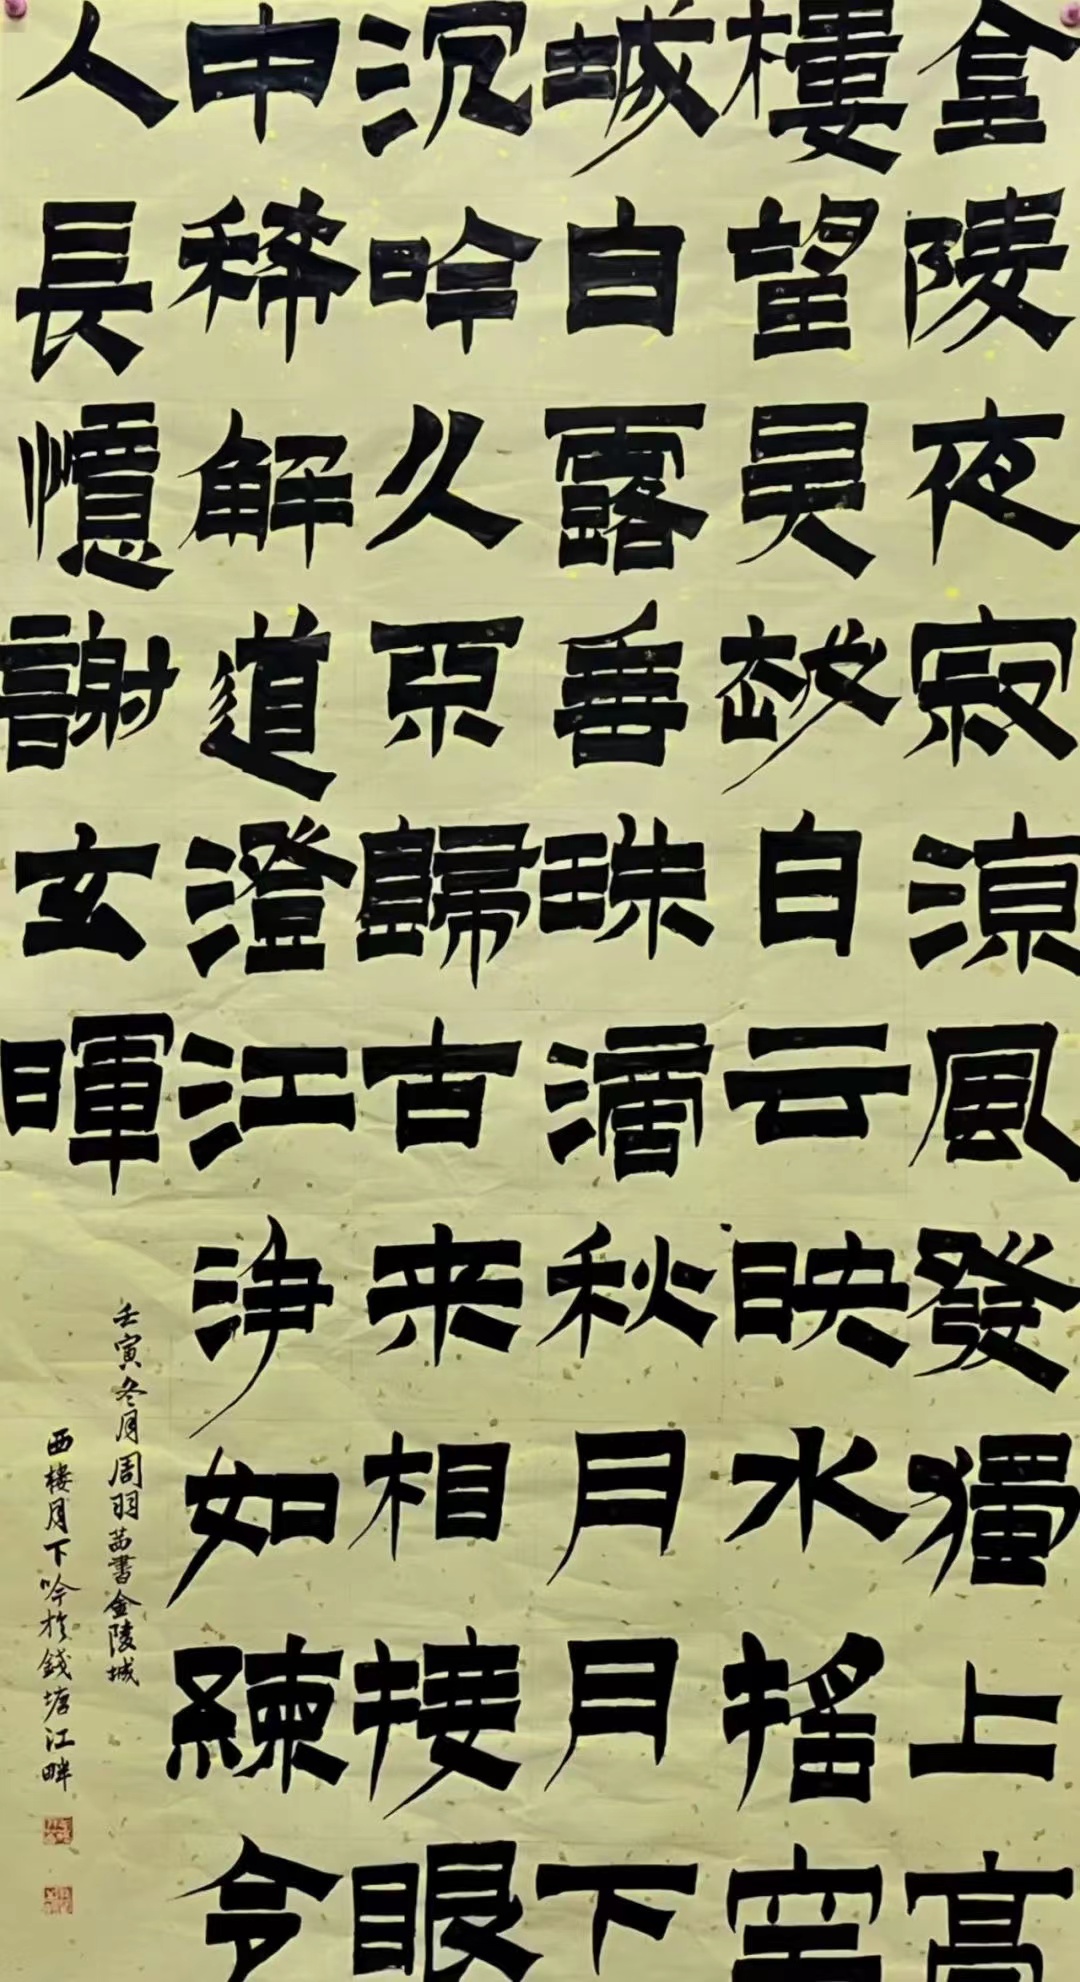 金陵夜寂涼風發獨上高
樓望吳越白云映水摇空
城白露垂珠滴秋月月下
沉吟久不歸古来相接眼
中稀解道澄江净如練令
人長憶謝玄暉
壬寅冬月周羽茜書金陵城
西樓月下吟於錢塘江畔